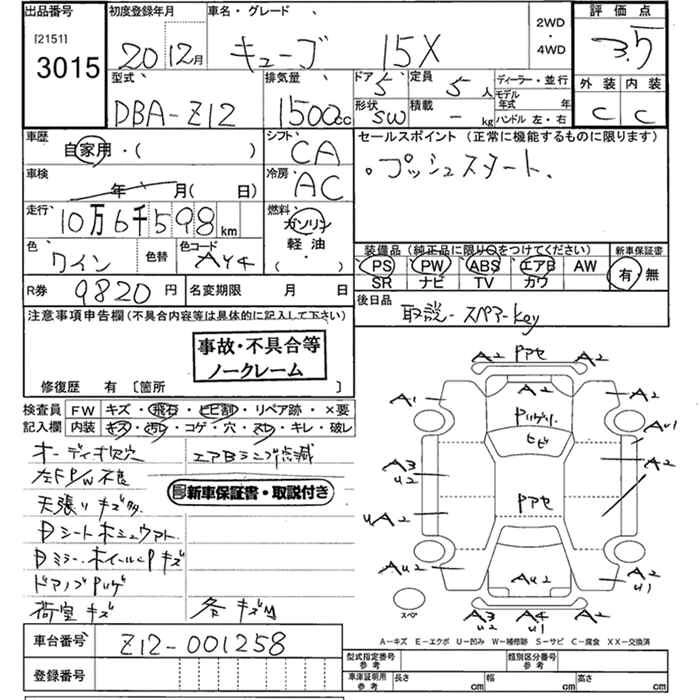 出品番号
[2151]
3015
初度登録年月
20 12月
車名・グレード
キューブ 15X
2WD
・
4WD
評価点
3.5
外装 内装
C C
型式
DBA-Z12
排気量
1500cc
ドア 5
定員 5人
形状 SW
積載 - kg
ディーラー・並行
モデル年式 年
ハンドル 左・右
車歴
自家用・( )
シフト
CA
セールスポイント (正常に機能するものに限ります)
・プッシュスタート.
車検
年 月( 日)
冷房
AC
走行
10万6千598km
燃料
ガソリン
軽油
( )
色
ワイン
色替
色コード
AY4
装備品(純正品に限り○をつけてください)
PS PW ABS エアB AW
SR ナビ TV カワ
新車保証書
有・無
R券 9820円
名変期限 月 日
後日品
取説-スペアーkey
注意事項申告欄(不具合内容等は具体的に記入して下さい)
事故・不具合等
ノークレーム
修復歴 有〔箇所 〕
検査員
記入欄
FW キズ・飛石・ヒビ割・リペア跡・×要
内装 キズ・汚レ・コゲ・穴・スレ・キレ・破レ
オーディオ欠穴
エアBランプ点滅
左F P/W不良
新車保証書・取説付き
天張りキズ
Dシート
Dミラー・ホイールPキズ
ドアノブPハゲ
荷室キズ
各キズM
車台番号 Z12-001258
登録番号
A2 Pアセ A2
A2
A1 A2
Pハゲリ.
ヒビ
AU1
A3
U2
A2
Pアセ
UA2
AU2 A2
U1
AU2
スペ
A3
U2
A4
U1
A2
A-キズ E-エクボ U-凹み W-補修跡 S-サビ C-腐食 XX-交換済
型式指定番号
参考
類別区分番号
参考
車庫証明用
参考
長さ cm 幅 cm 高さ cm